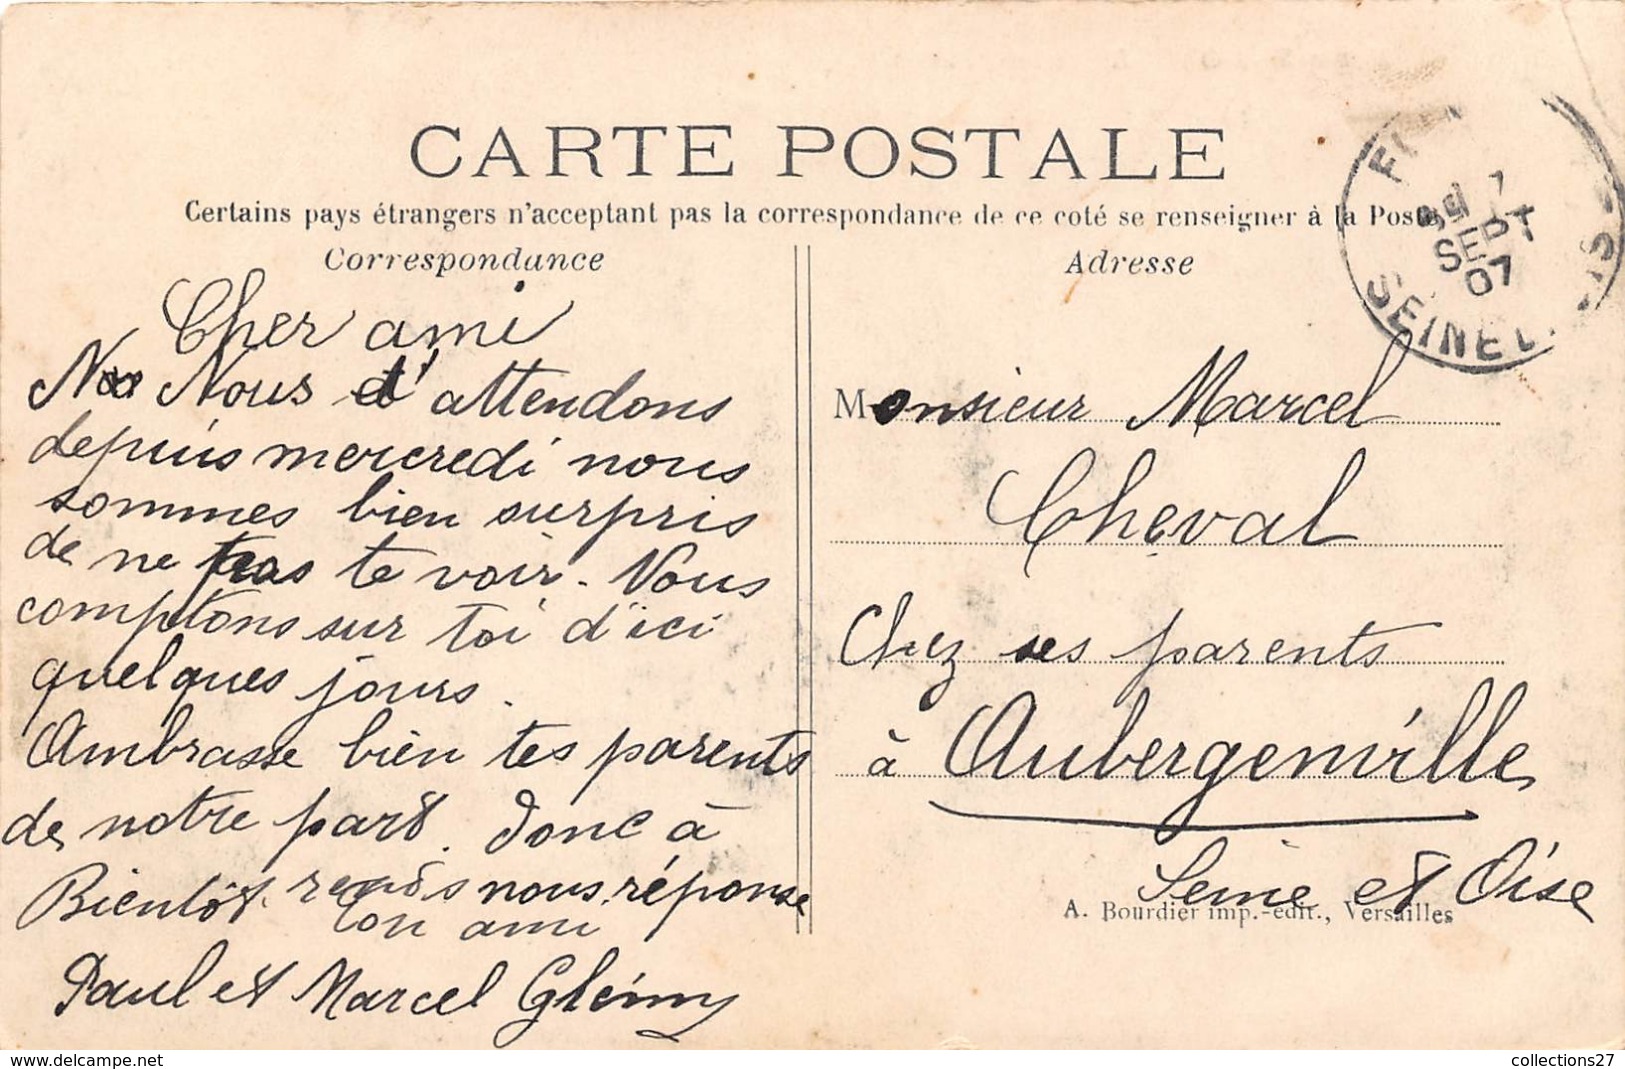 CARTE POSTALE
Certains pays étrangers n'acceptant pas la correspondance de ce coté se renseigner à la Poste
Correspondance
Cher ami
Nous t'attendons
depuis mercredi nous
sommes bien surpris
de ne pas te voir. Nous
comptons sur toi d'ici
quelques jours.
Ambrasse bien tes parents
de notre part. donc à
Bientôt. rends nous réponse
Ton ami
Paul et Marcel Glémy
Adresse
Monsieur Marcel
Cheval
Chez ses parents
à Aubergenville
Seine et Oise
A. Bourdier imp.-édit., Versailles
SEPT
07
SEINE
www.delcampe.net
collections27